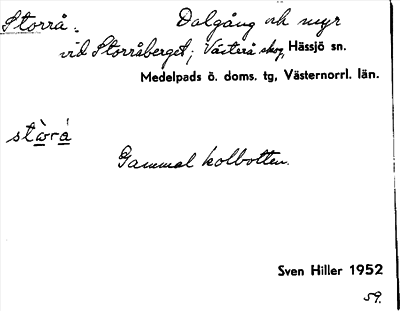 Storrå. Dalgång och myr
vid Storråberget; Västerå skog, Hässjö sn.
Medelpads ö. doms. tg, Västernorrl. län.
stòrá
Gammal kolbotten.
Sven Hiller 1952
59.